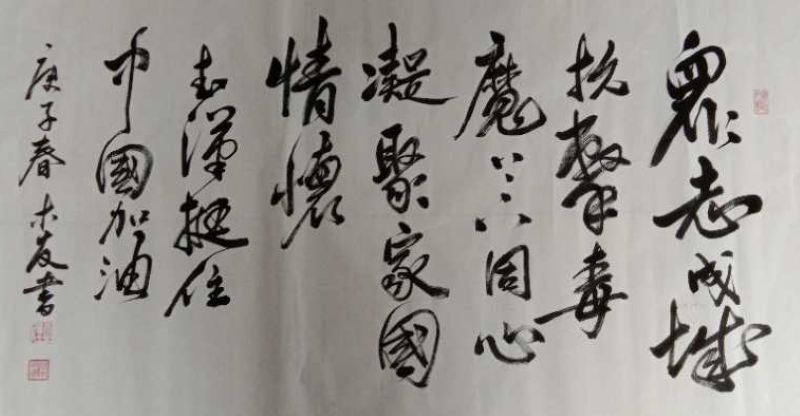 眾志成城
抗擊毒
魔上下同心
凝聚家國
情懷
武漢挺住
中國加油
庚子春 書